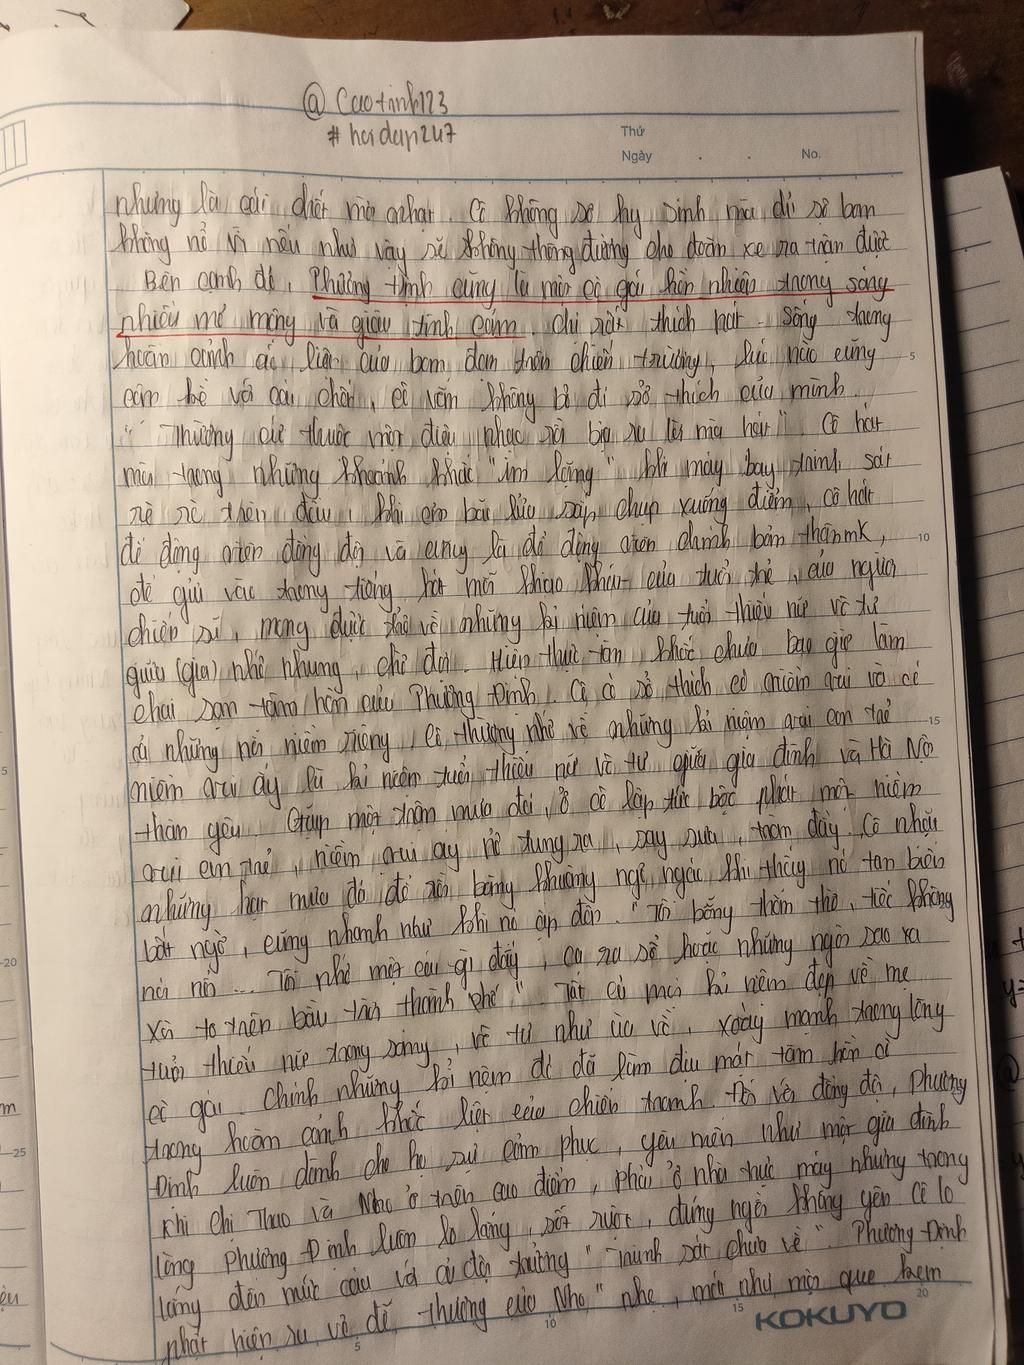 @ Caotinh123
# hoidap247
Thứ
Ngày . . No.
nhưng là cái chết mờ nhạt. Cô không sợ hy sinh mà chỉ sợ bom
không nổ vì nếu như vậy sẽ không thông đường cho đoàn xe ra trận được
Bên cạnh đó, Phương Định cũng là một cô gái hồn nhiên trong sáng
nhiều mơ mộng và giàu tình cảm, chị rất thích hát. Sống trong
hoàn cảnh ác liệt của bom đạn trên chiến trường, lúc nào cũng
cận kề với cái chết, cô vẫn không bỏ đi sở thích của mình.
" Thường cứ thuộc một điệu nhạc rồi bịa ra lời mà hát". Cô hát
trong những khoảnh khắc "im lặng" khi máy bay trinh sát
rè rè trên đầu, khi cơn bão lửa sắp chụp xuống điểm, cô hát
để động viên đồng đội và cũng là để động viên chính bản thân mk,
để gửi vào trong tiếng hát mọi khao khát của tuổi trẻ, của người
chiến sĩ, mong được trở về những kỉ niệm của tuổi thiếu nữ vô tư
giữa (gia) nhỏ nhưng, chờ đợi. Hiện thực tàn khốc chưa bao giờ làm
chai sạn tâm hồn của Phương Định. Cô có sở thích có niềm vui và có
cả những nỗi niềm riêng, cô thường nhớ về những kỉ niệm vui con trẻ
niềm vui ấy là kỉ niệm tuổi thiếu nữ vô tư giữa gia đình và Hà Nội
thân yêu. Gặp một trận mưa đá, ở cô lập tức bộc phát một niềm
vui con trẻ, niềm vui ấy nở tung ra, say sưa, tràn đầy. Cô nhặt
những hạt mưa đá để rồi bâng khuâng ngơ ngác khi thấy nó tan biến
bất ngờ, cũng nhanh như khi nó ập đến. "Tôi bỗng thẫn thờ, tiếc không
nói nổi... Tôi nhớ một cái gì đấy, cửa sổ hoặc những ngôi sao xa
xôi to trên bầu trời thành phố". Tất cả mọi kỉ niệm đẹp về mẹ
tuổi thiếu nữ trong sáng, vô tư như ùa về, xoáy mạnh trong lòng
cô gái. Chính những kỉ niệm đó đã làm dịu mát tâm hồn cô
trong hoàn cảnh khốc liệt của chiến tranh. Đối với đồng đội, Phương
Định luôn dành cho họ sự cảm phục, yêu mến như một gia đình
Khi chị Thao và Nho ở trên cao điểm, phải ở nhà trực máy nhưng trong
lòng Phương Định luôn lo lắng, sốt ruột, đứng ngồi không yên cô lo
lắng đến mức cáu với cả đội trưởng "Trinh sát chưa về". Phương Định
phát hiện ra vẻ dễ thương của Nho "nhẹ, mát như một que kem
5
10
15
20
KOKUYO